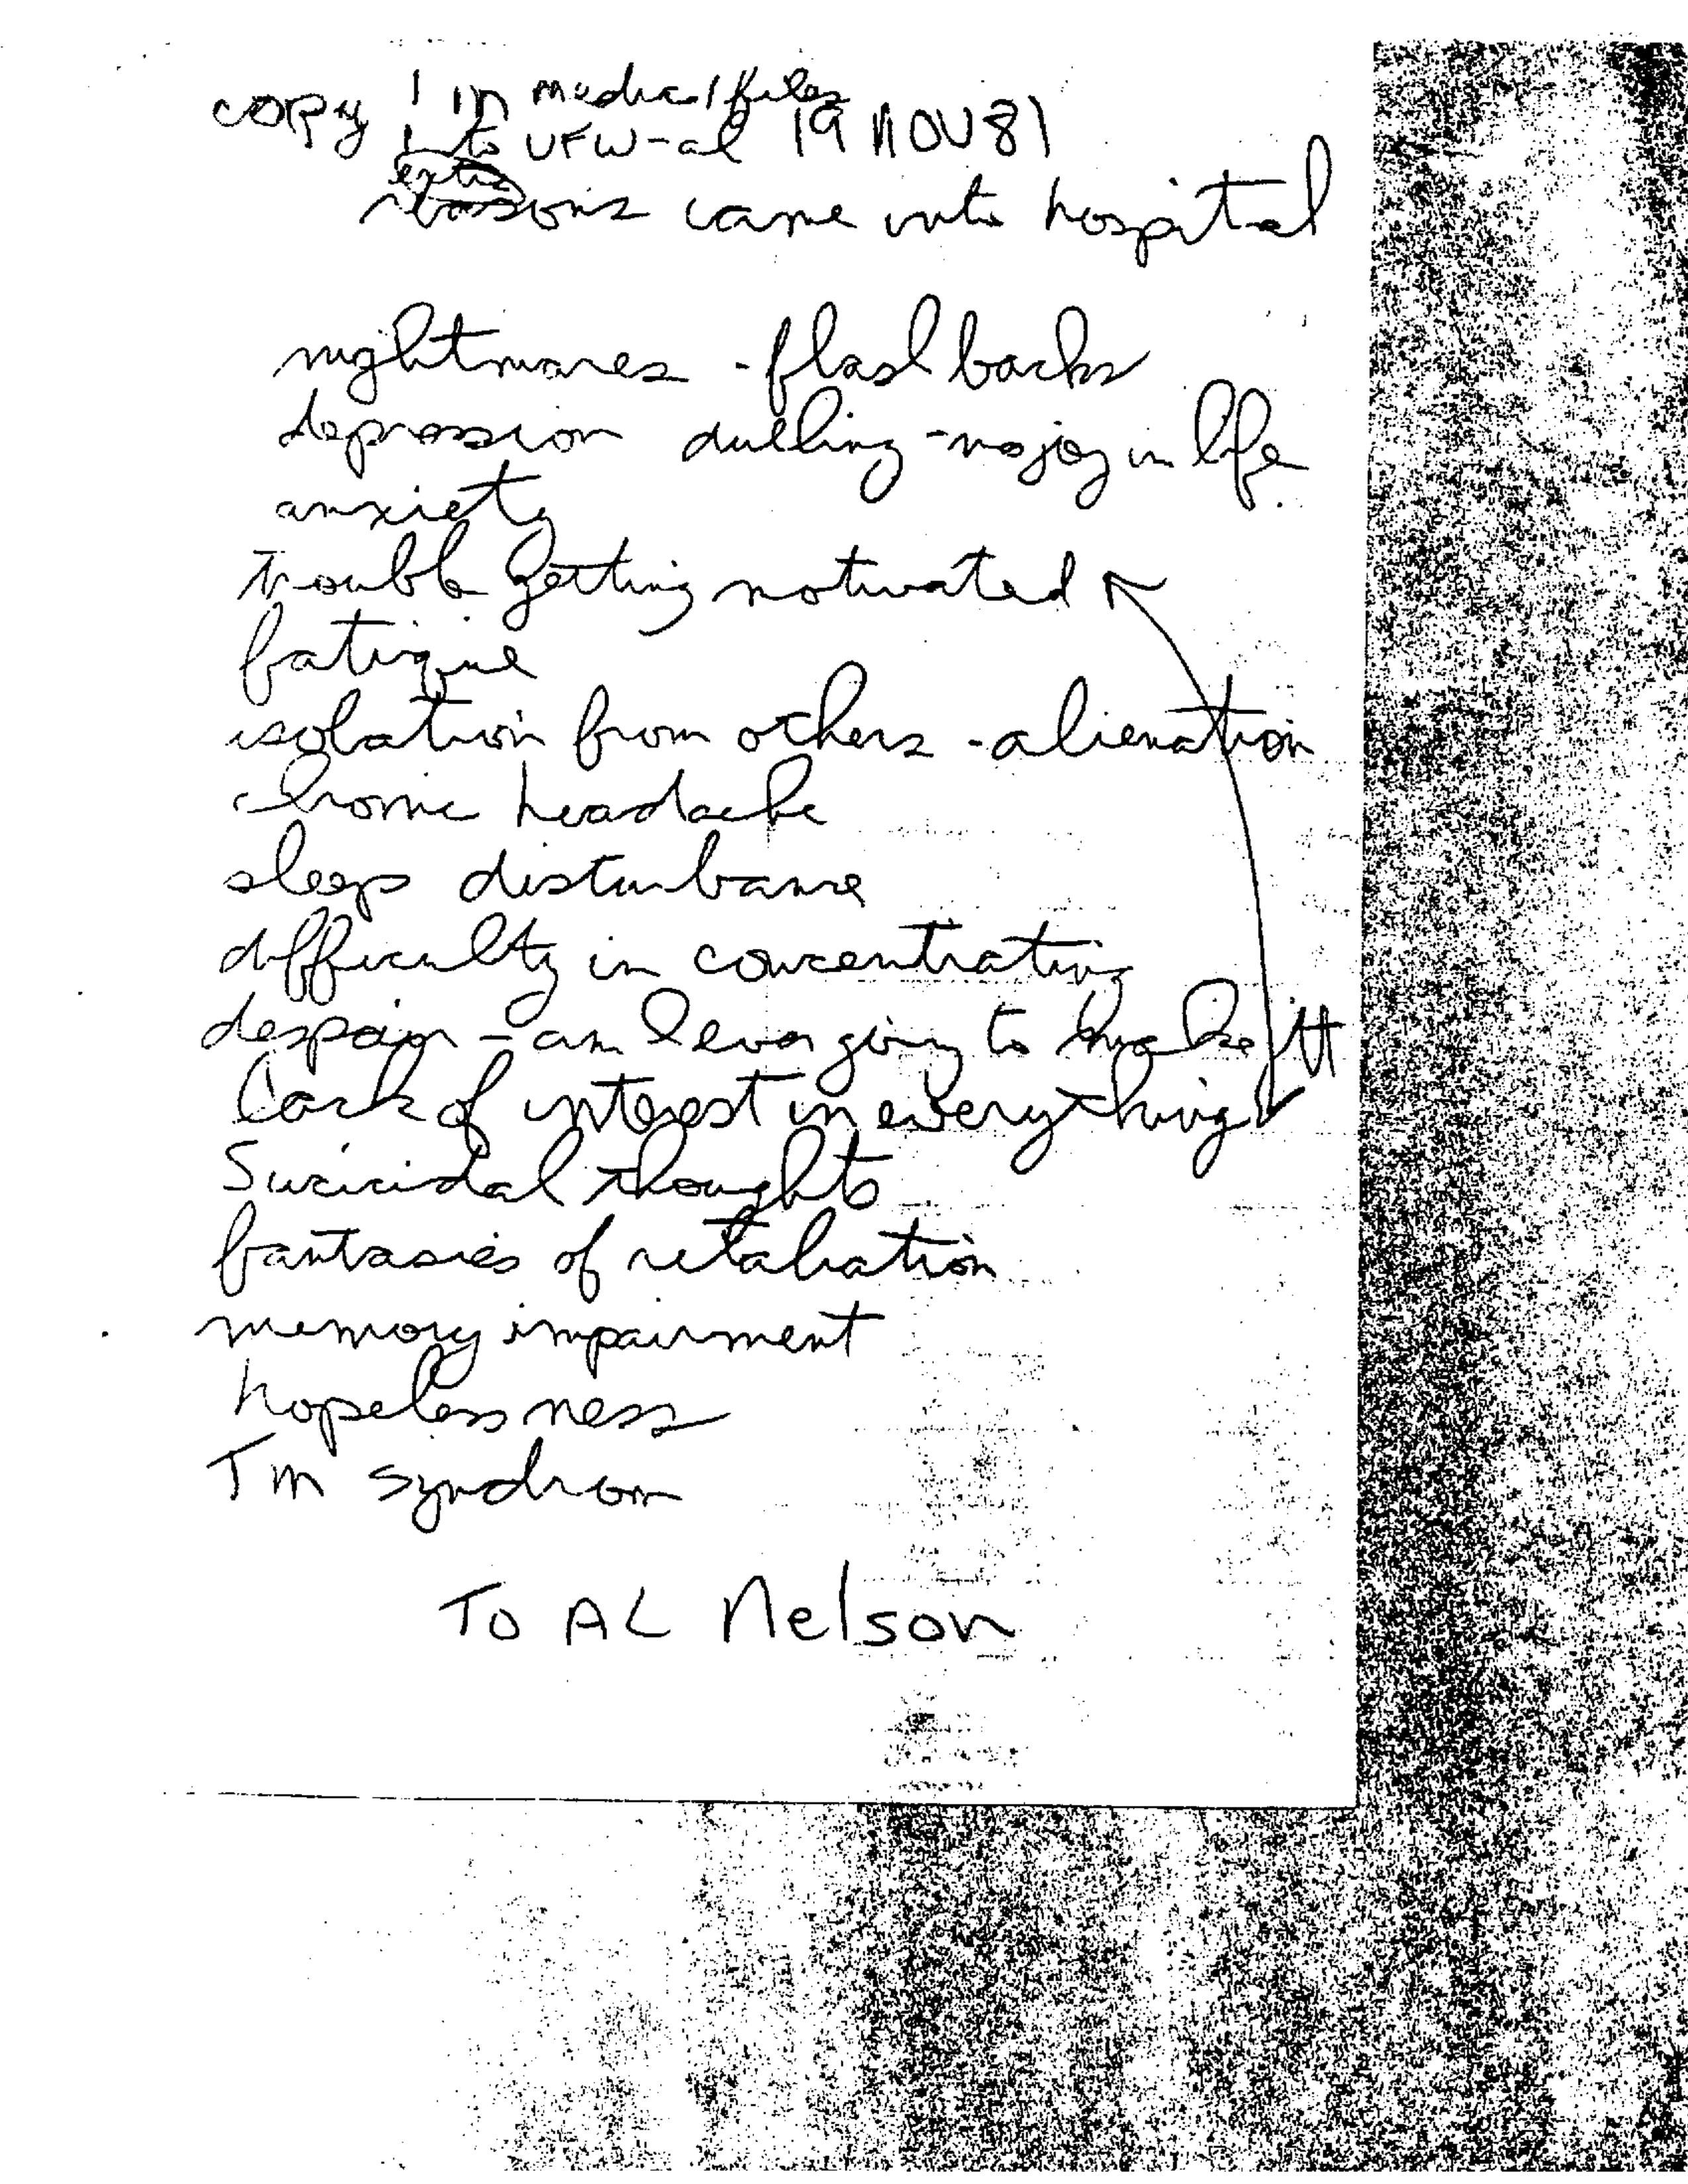 copy 1 in medical files
1 to VFW-al 19 NOV 81
extra
reasons came into hospital
nightmares - flashbacks
depression dulling - no joy in life
anxiety
trouble getting motivated
fatigue
isolation from others - alienation
chronic headache
sleep disturbance
difficulty in concentrating
despair - am I ever going to make it
Lack of interest in everything
Suicidal thoughts
fantasies of retaliation
memory impairment
hopelessness
Tm syndrom
To AL Nelson